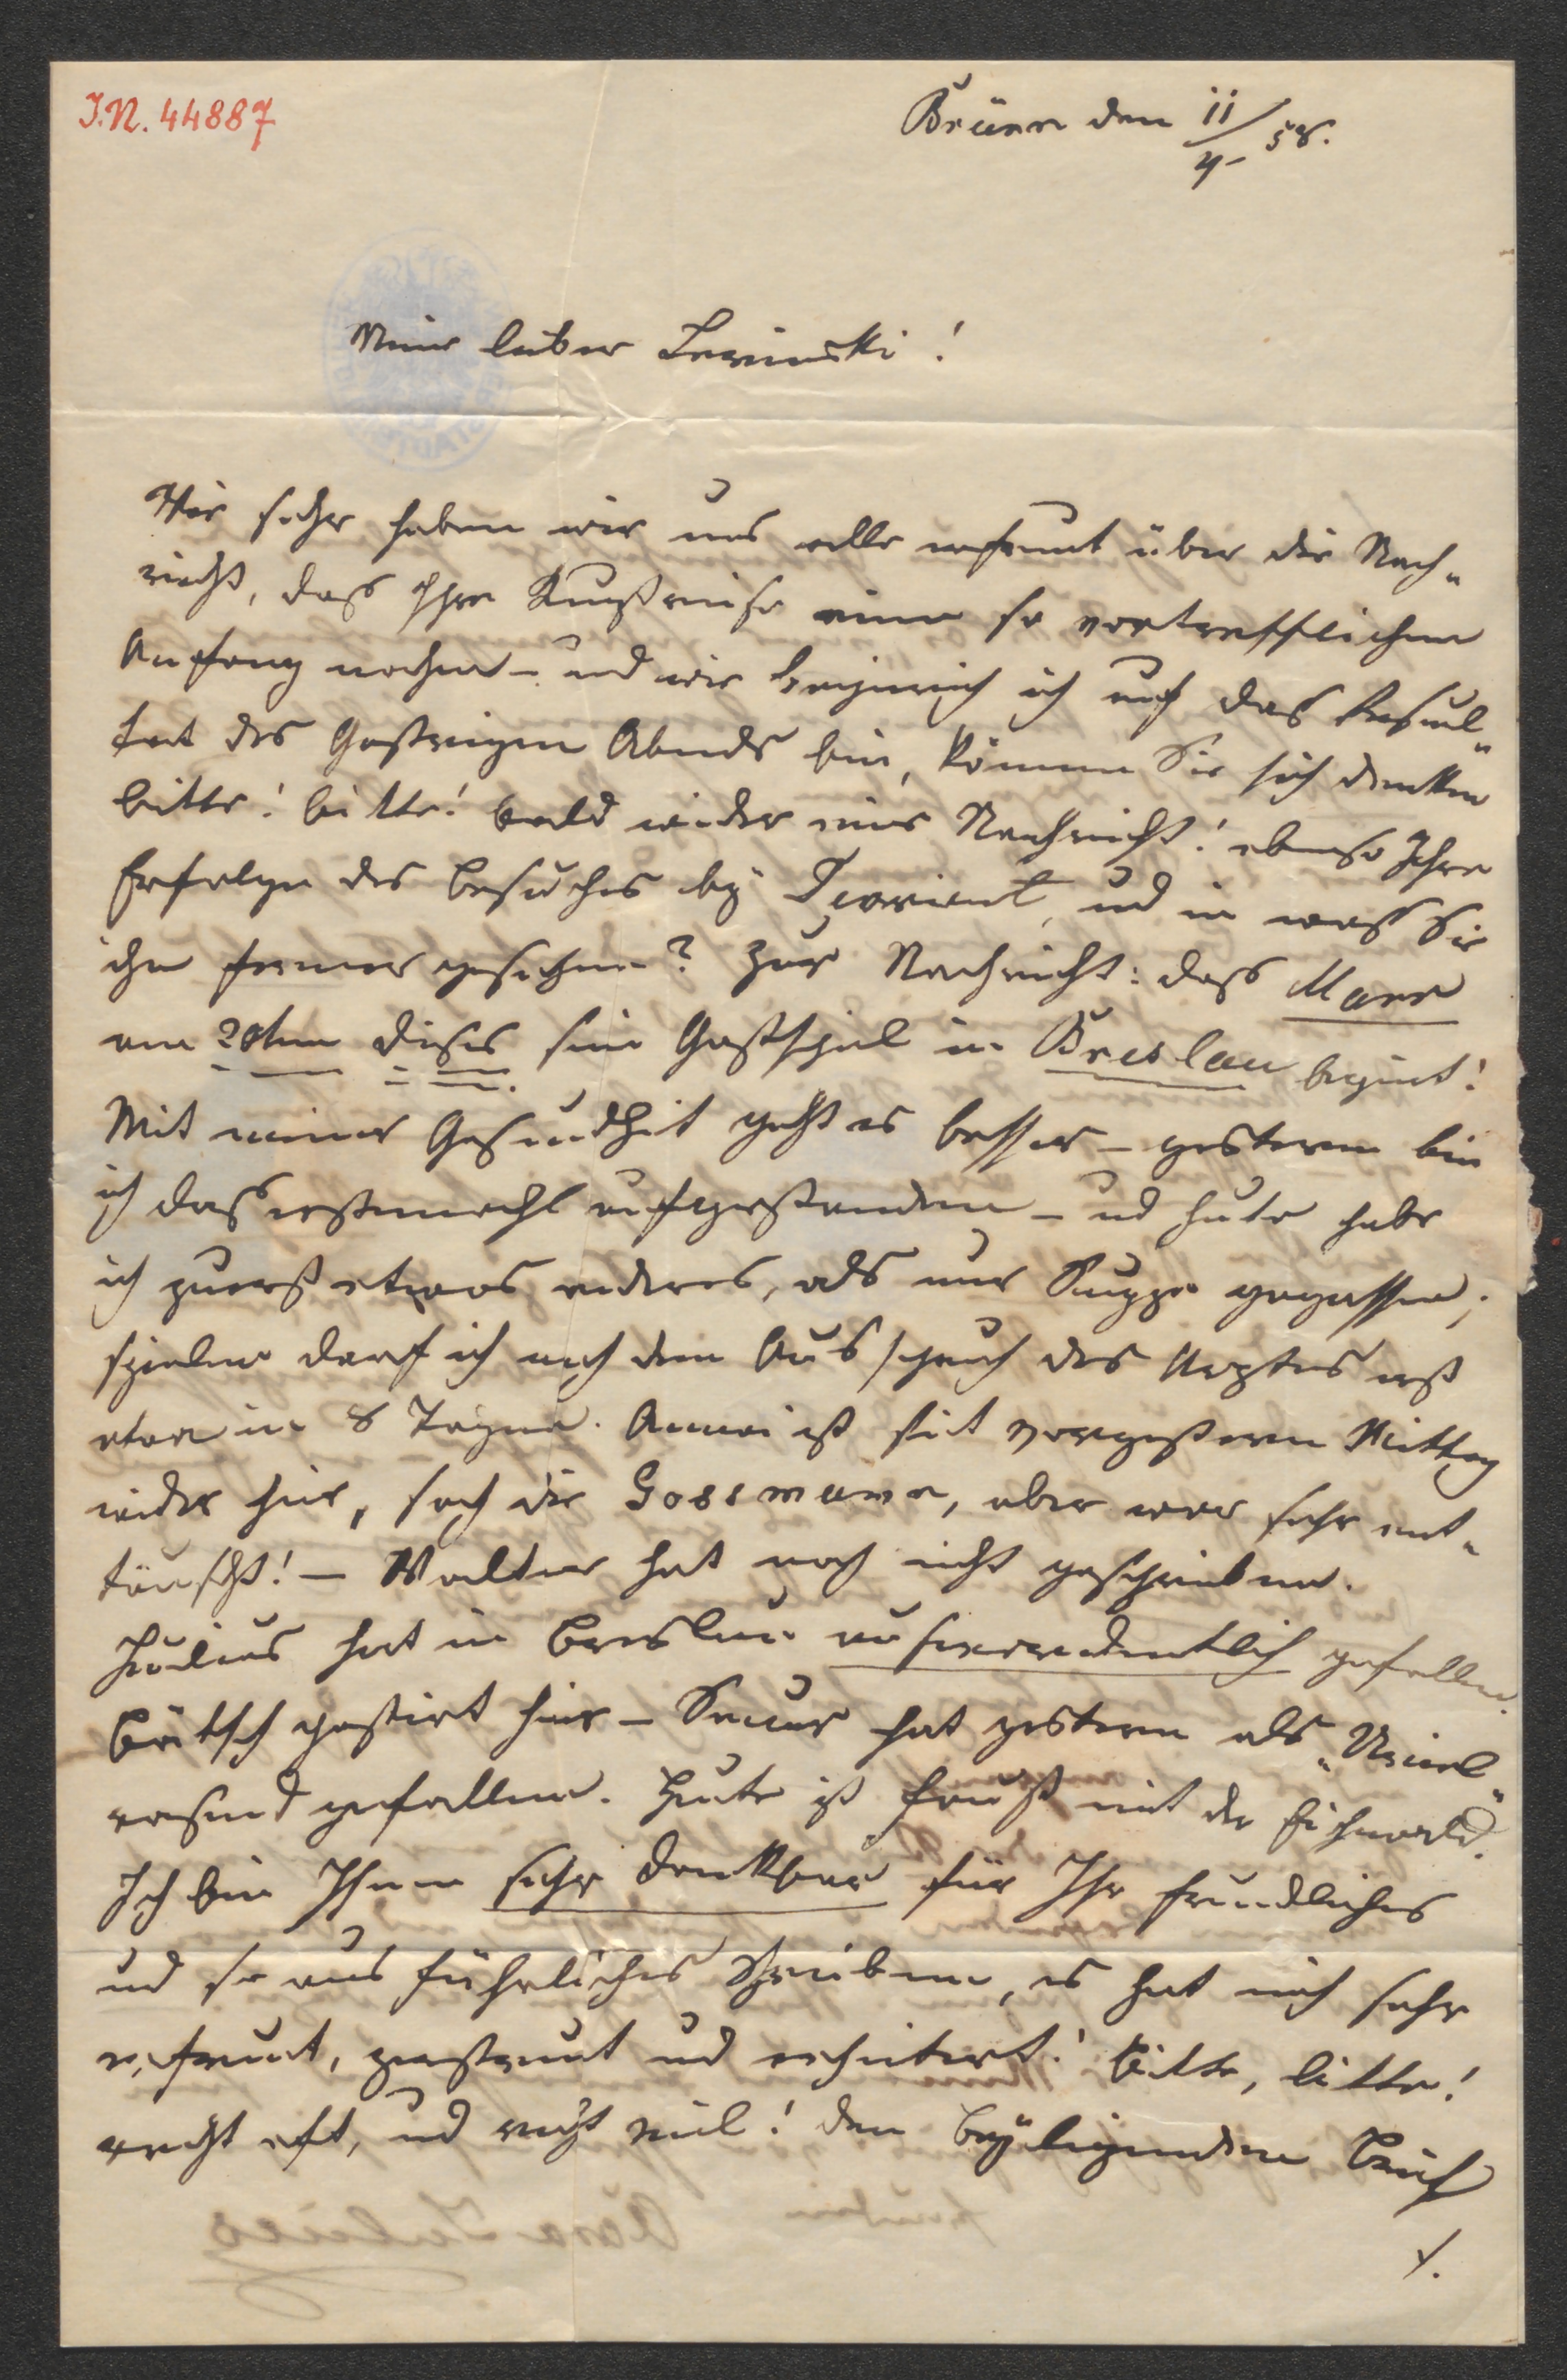 I.N. 44887
Brünn den 11/4 58.
Mein lieber Lewinski!
Wie sehr haben wir uns alle erfreut über die Nach-
richt, dass Ihre Kunstreise einen so vortrefflichen
Anfang nahm – und wie begierig ich auf das Resul-
tat des Gestrigen Abends bin, können Sie sich denken
bitte! bitte! bald wieder eine Nachricht! ebenso Ihre
Erfolge des Besuches bei Devrient, und in was Sie
ihn ferner gesehen? Zur Nachricht: dass Marr
am 20ten dieses sein Gastspiel in Breslau begint!
Mit meiner Gesundheit geht es besser – gestern bin
ich das erstemahl aufgestanden – und heute habe
ich zuerst etwas anderes, als nur Suppe gegessen;
spielen darf ich nach dem Ausspruch des Arztes erst
etwa in 8 Tagen. Annai ist seit vorgestern Mittag
wieder hier, sah die Gossmann, aber war sehr ent-
täuscht! – Walter hat noch nicht geschrieben.
Julius hat in Breslau auserordentlich gefallen.
Bätsch gastirt hier – hat gestern als „Uriel"
rasend gefallen. Heute ist Faust mit der Eichwald.
Ich bin Ihnen sehr dankbar für Ihr freundliches
und so ausführliches Schreiben, es hat mich sehr
erfreut, zerstreut und erheitert! Bitte, bitte!
recht oft, und recht viel! den beÿligenden Brief